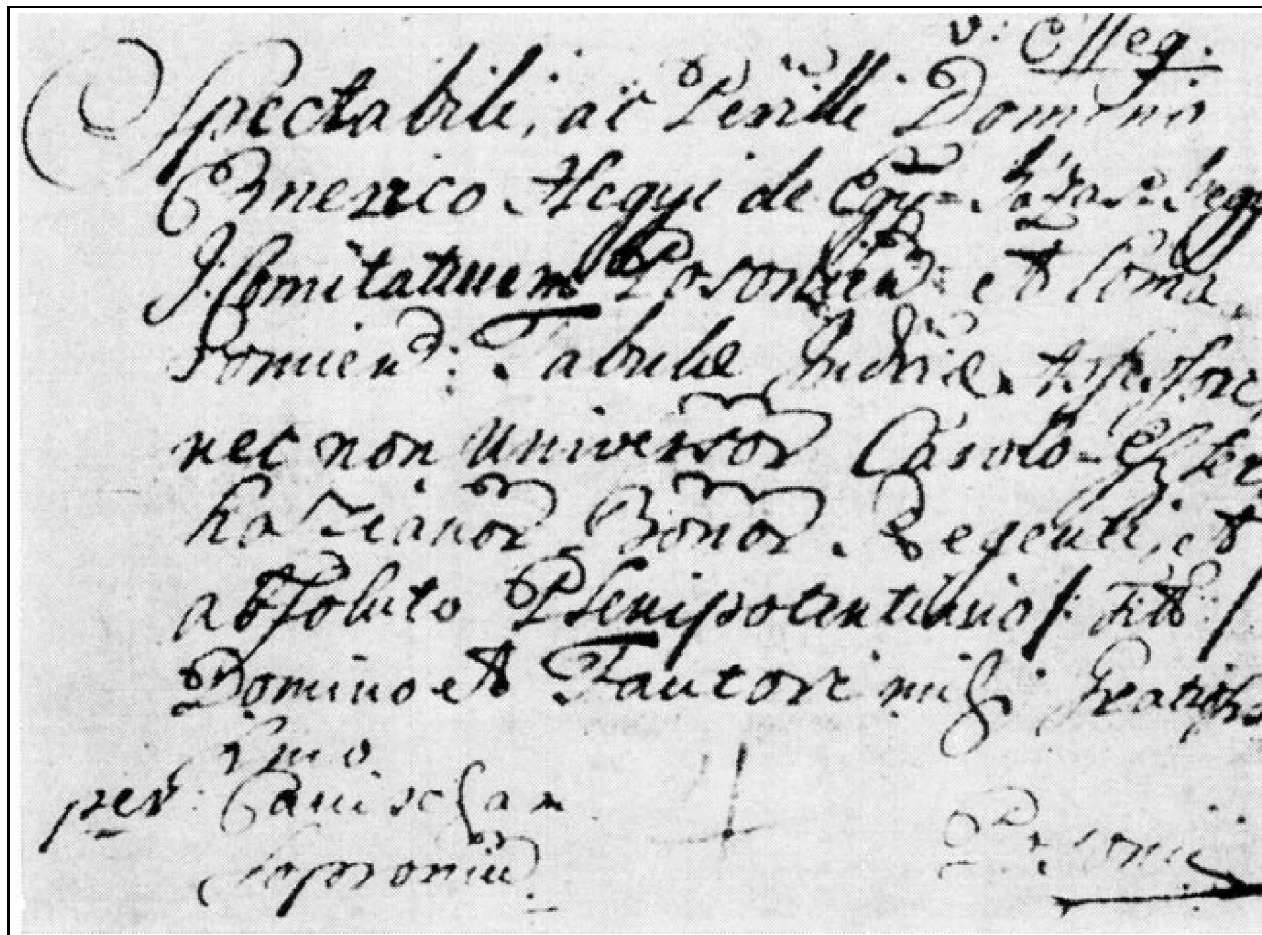 v: Esseg.
Spectabili, ac Perilli Domino
Emerico Hegyi de Egy=
J: Comitatuum Posonien: et Coma
romien: Tabulae Judriae
nec non Universor Carolo-Eszter
hazianor Bonor. Regenti, et
absoluto Plenipotentiario /: Titt: /
Domino et Fautori mihi Gratiosis
simo
per: Canischam
Sopronium
Posonii